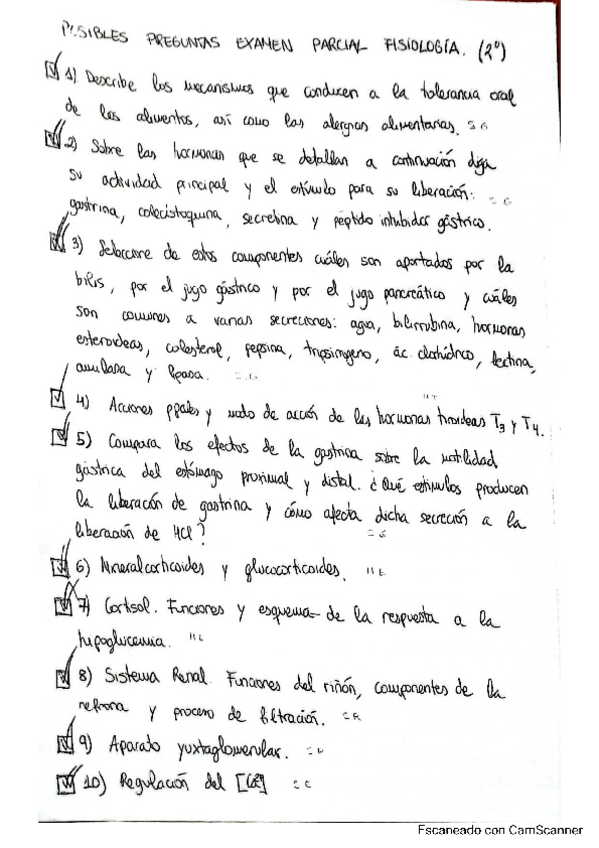 POSIBLES PREGUNTAS EXAMEN PARCIAL FISIOLOGÍA. (2º)
1) Describe los mecanismos que conducen a la tolerancia oral
de los alimentos, así como las alergias alimentarias.
2) Sobre las hormonas que se detallan a continuación diga
su actividad principal y el estímulo para su liberación:
gastrina, colecistoquina, secretina y péptido inhibidor gástrico.
3) Seleccione de estos componentes cuáles son aportados por la
bilis, por el jugo gástrico y por el jugo pancreático y cuáles
son comunes a varias secreciones: agua, bilirrubina, hormonas
esteroideas, colesterol, pepsina, tripsinógeno, ác. clorhídrico, lectina,
amilasa y lipasa.
4) Acciones ppales y modo de acción de las hormonas tiroideas T3 y T4.
5) Compara los efectos de la gastrina sobre la motilidad
gástrica del estómago proximal y distal. ¿Qué estímulos producen
la liberación de gastrina y cómo afecta dicha secreción a la
liberación de HCl?
6) Mineralcorticoides y glucocorticoides.
7) Cortisol. Funciones y esquema de la respuesta a la
hipoglucemia.
8) Sistema Renal. Funciones del riñón, componentes de la
nefrona y proceso de filtración.
9) Aparato yuxtaglomerular.
10) Regulación del
Escaneado con CamScanner